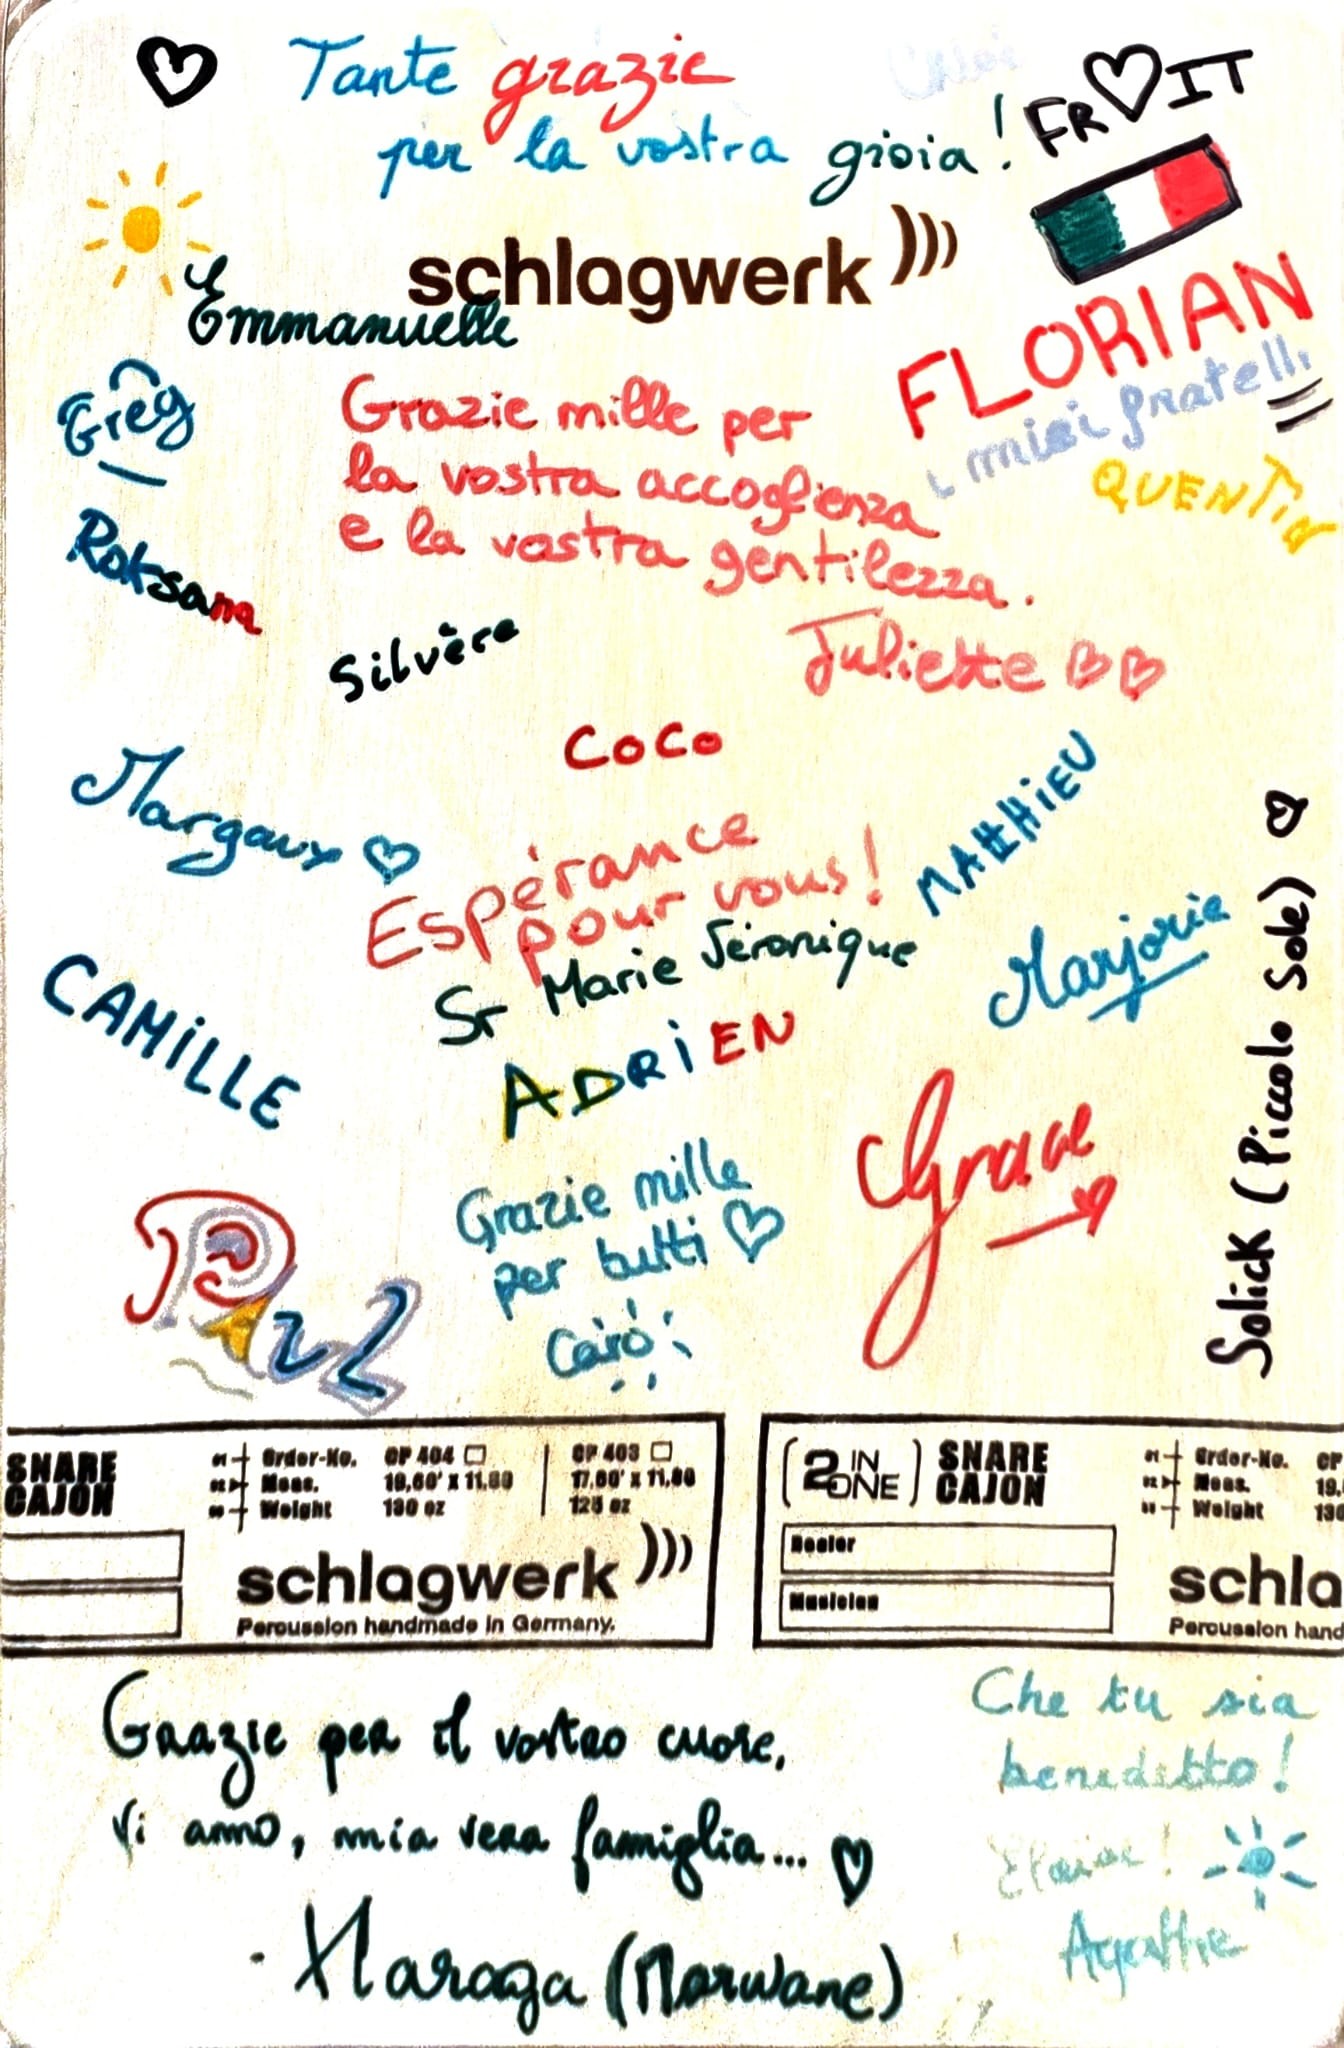 Tante grazie
per la vostra gioia !
FR IT
schlagwerk
Emmanuelle
FLORIAN
i miei fratelli
QUENTIN
Greg
Grazie mille per
la vostra accoglienza
e la vostra gentilezza.
Juliette
Roksana
Silvère
COCO
Margaux
MATTHIEU
Espérance
pour vous !
Sr Marie Véronique
Marjorie
CAMILLE
ADRIEN
Grace
Solick (Piccolo Sole)
Paul
Grazie mille
per tutti
Caro
SNARE
CAJON
Order-No. CP 404 CP 403
Meas. 19,60' X 11,80 17,60' X 11,80
Weight 130 oz 125 oz
schlagwerk
Percussion handmade in Germany.
2 IN ONE
SNARE
CAJON
Order-No. CP
Meas. 19.
Weight 130
Dealer
Musician
schla
Percussion hand
Grazie per il vostro cuore,
Vi amo, mia vera famiglia...
Maroga (Marwane)
Che tu sia
benedetto !
Agathe